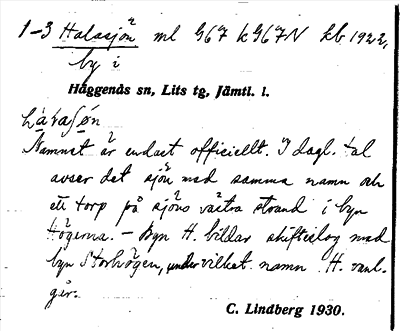 1–3 Halasjön ml 967 k 967 N kb 1922,
by i
Häggenås sn, Lits tg, Jämtl. l.
Namnet är endast officiellt. I dagl. tal
avser det sjön med samma namn och
ett torp på sjöns västra strand i byn
Högarna. – Byn H. bildar skifteslag med
byn Storhögen, under vilket namn H. vanl.
går.
C. Lindberg 1930.